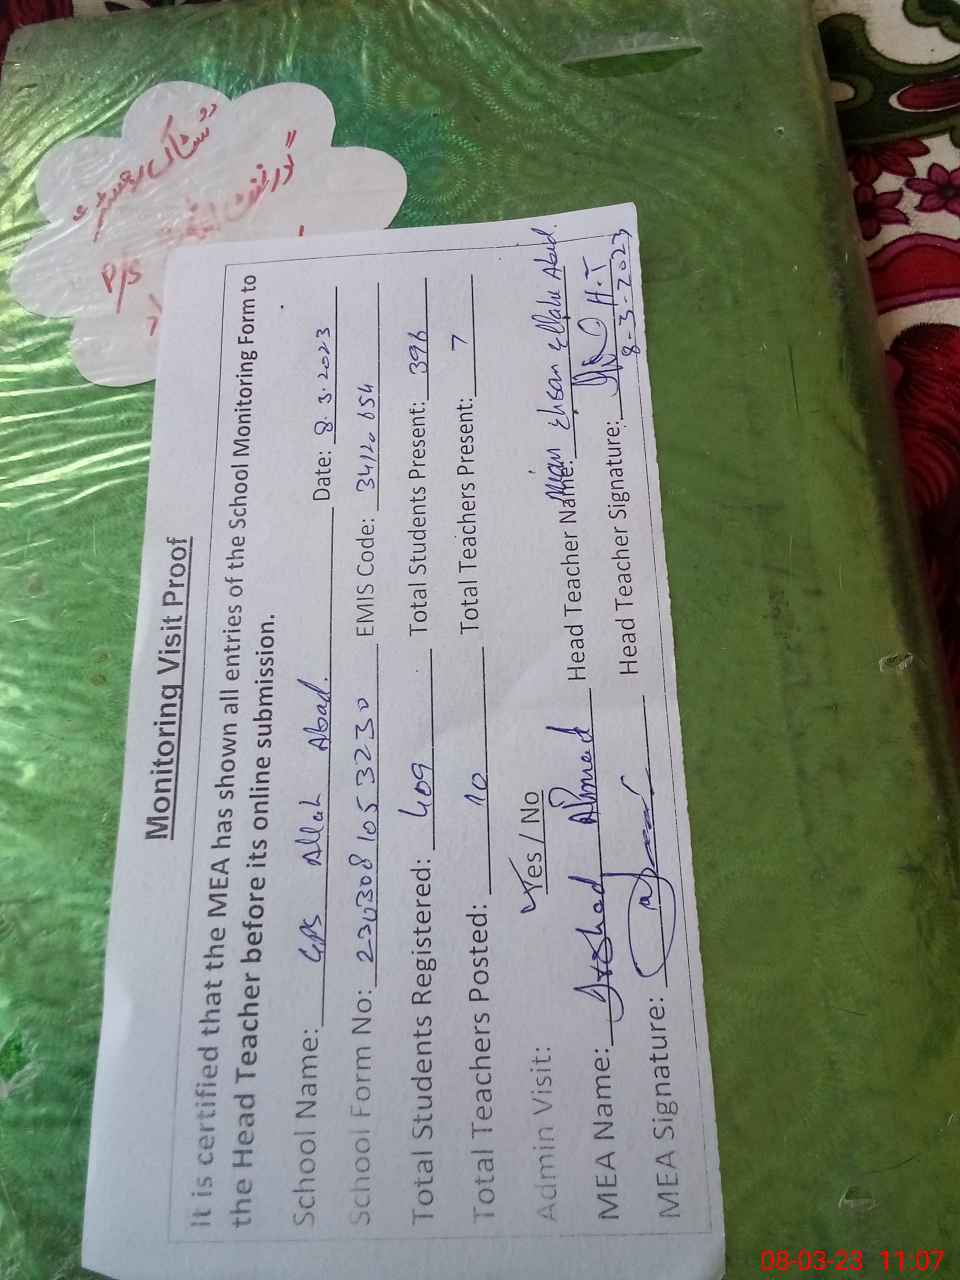 Monitoring Visit Proof
It is certified that the MEA has shown all entries of the School Monitoring Form to
the Head Teacher before its online submission.
School Name: GPS Allah Abad. Date: 8.3.2023
School Form No: 230308 1053230 EMIS Code: 34120654
Total Students Registered: 409 Total Students Present: 396
Total Teachers Posted: 10 Total Teachers Present: 7
Admin Visit: Yes / No
MEA Name: Arshad Ahmed Head Teacher Name: Mian Ehsan Ellahi Abid.
MEA Signature: Head Teacher Signature: H.T
8-3-2023
سٹاک رجسٹر
گورنمنٹ
P/S
08-03-23 11:07